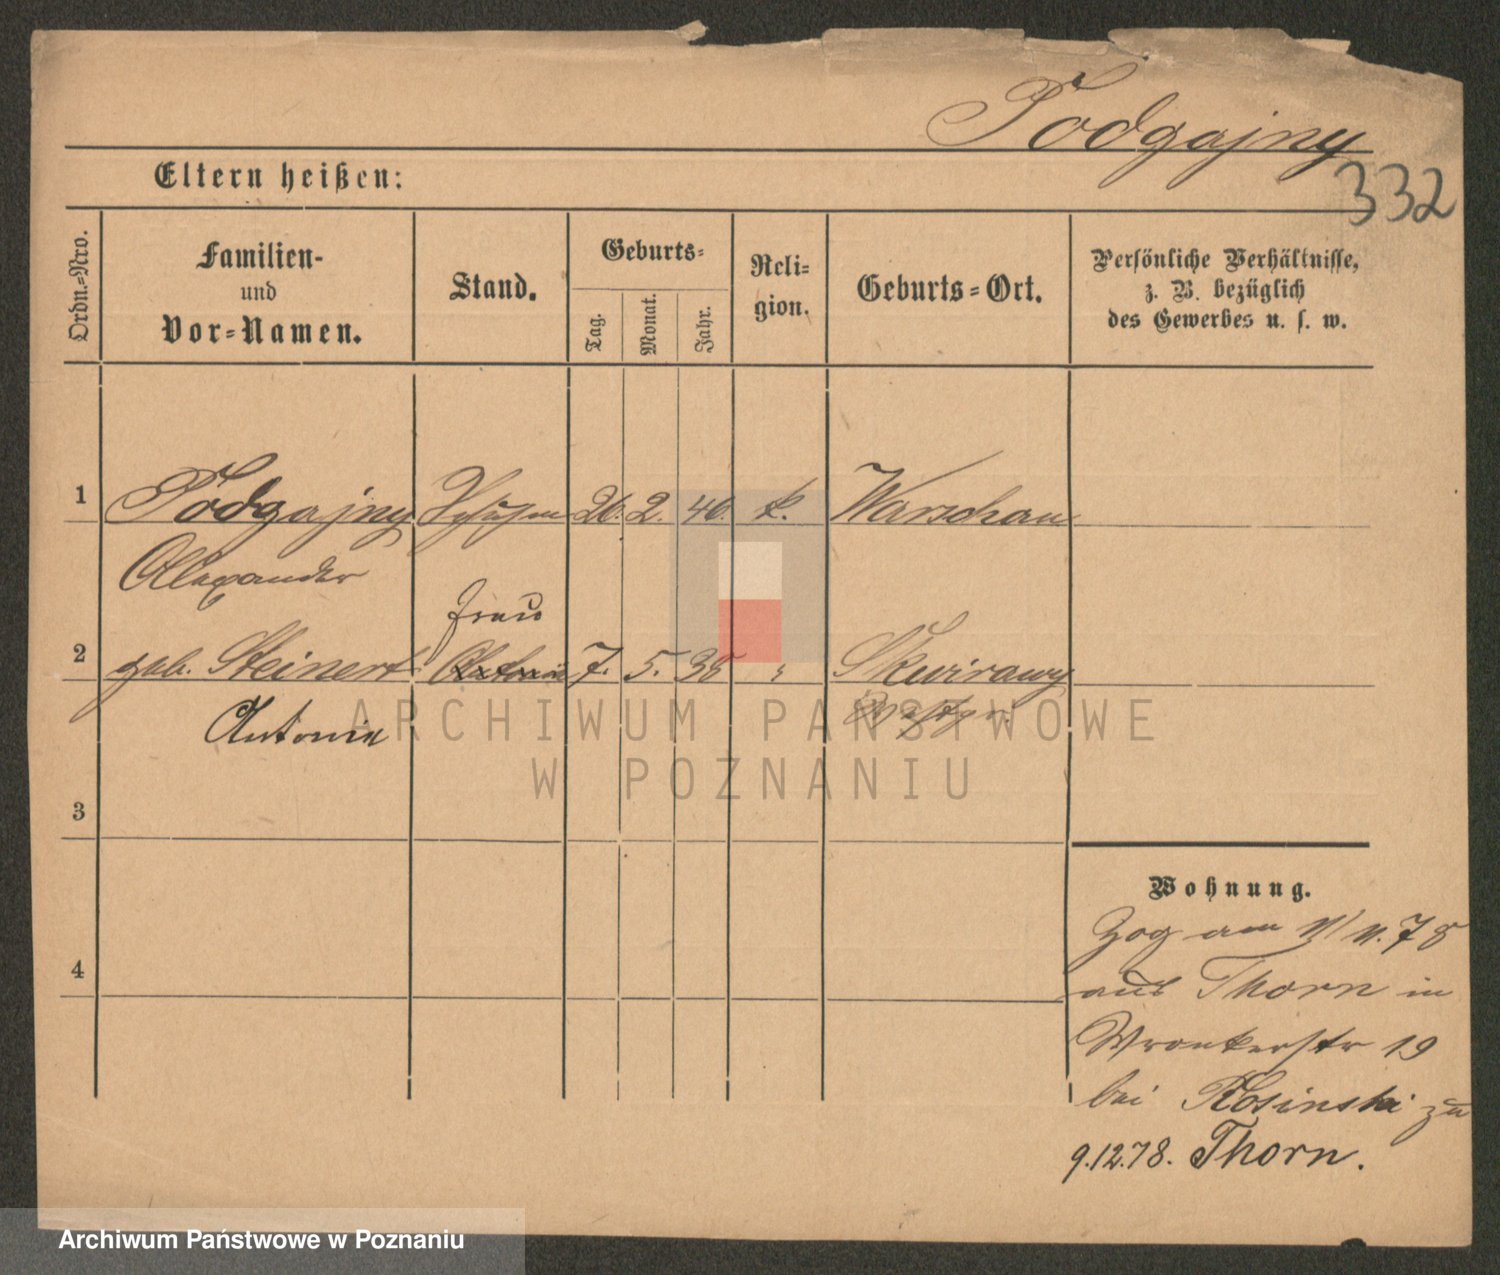 Podgajny
332
Eltern heißen:
Ordn.-Nro.
Familien-
und
Vor-Namen.
Stand.
Geburts-
Tag.
Monat.
Jahr.
Reli-
gion.
Geburts-Ort.
Persönliche Verhältnisse,
z. B. bezüglich
des Gewerbes u. s. w.
1 Podgajny 26. 2. 46. k. Warschau
Alexander
Frau
2 geb. Steinert Antonie 7. 5. 38 " Skwirawy
Antonie
3
4
Wohnung.
Zog am 11/11.78
aus Thorn in
Wronkerstr 19
bei Kosinski zu
9.12.78. Thorn.
ARCHIWUM PAŃSTWOWE
W POZNANIU
Archiwum Państwowe w Poznaniu